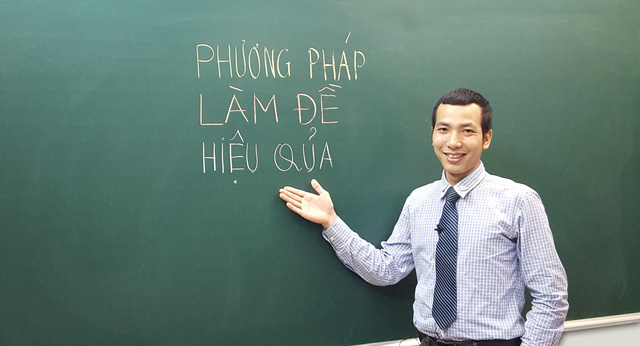 PHƯƠNG PHÁP
LÀM ĐỀ
HIỆU QỦA